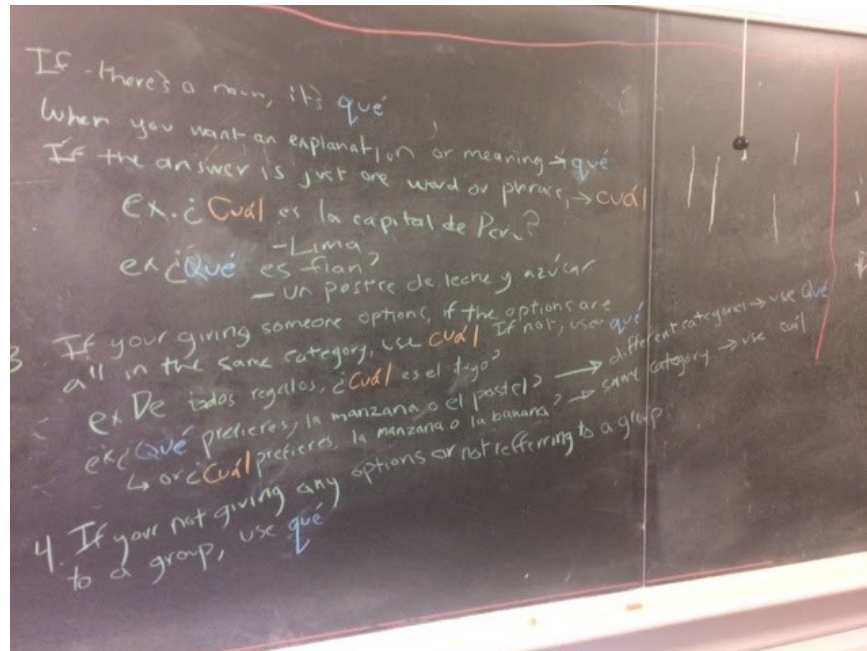 If there's a noun, it's qué
When you want an explanation or meaning → qué
If the answer is just one word or phrase, → cuál
ex. ¿Cuál es la capital de Perú?
- Lima
ex ¿Qué es flan?
- un postre de leche y azúcar
3 If your giving someone options, if the options are
all in the same category, use cuál If not, use qué
ex De todos regalos, ¿Cuál es el tuyo?
ex ¿Qué prefieres, la manzana o el pastel? → different categories → use Qué
↳ or ¿Cuál prefieres, la manzana o la banana? → same category → use cuál
4. If your not giving any options or not refferring to a group
to a group, use qué